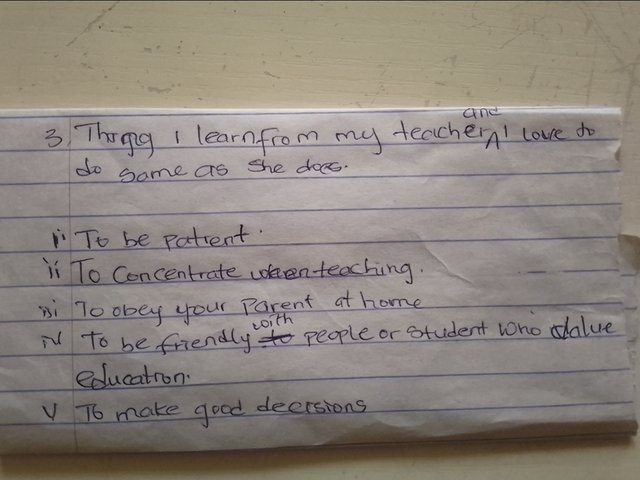 3. Things I learn from my teacher and I love to
do same as she does.
i. To be patient.
ii To concentrate when teaching.
iii To obey your parent at home
iv To be friendly with people or student who value
education.
v To make good decisions